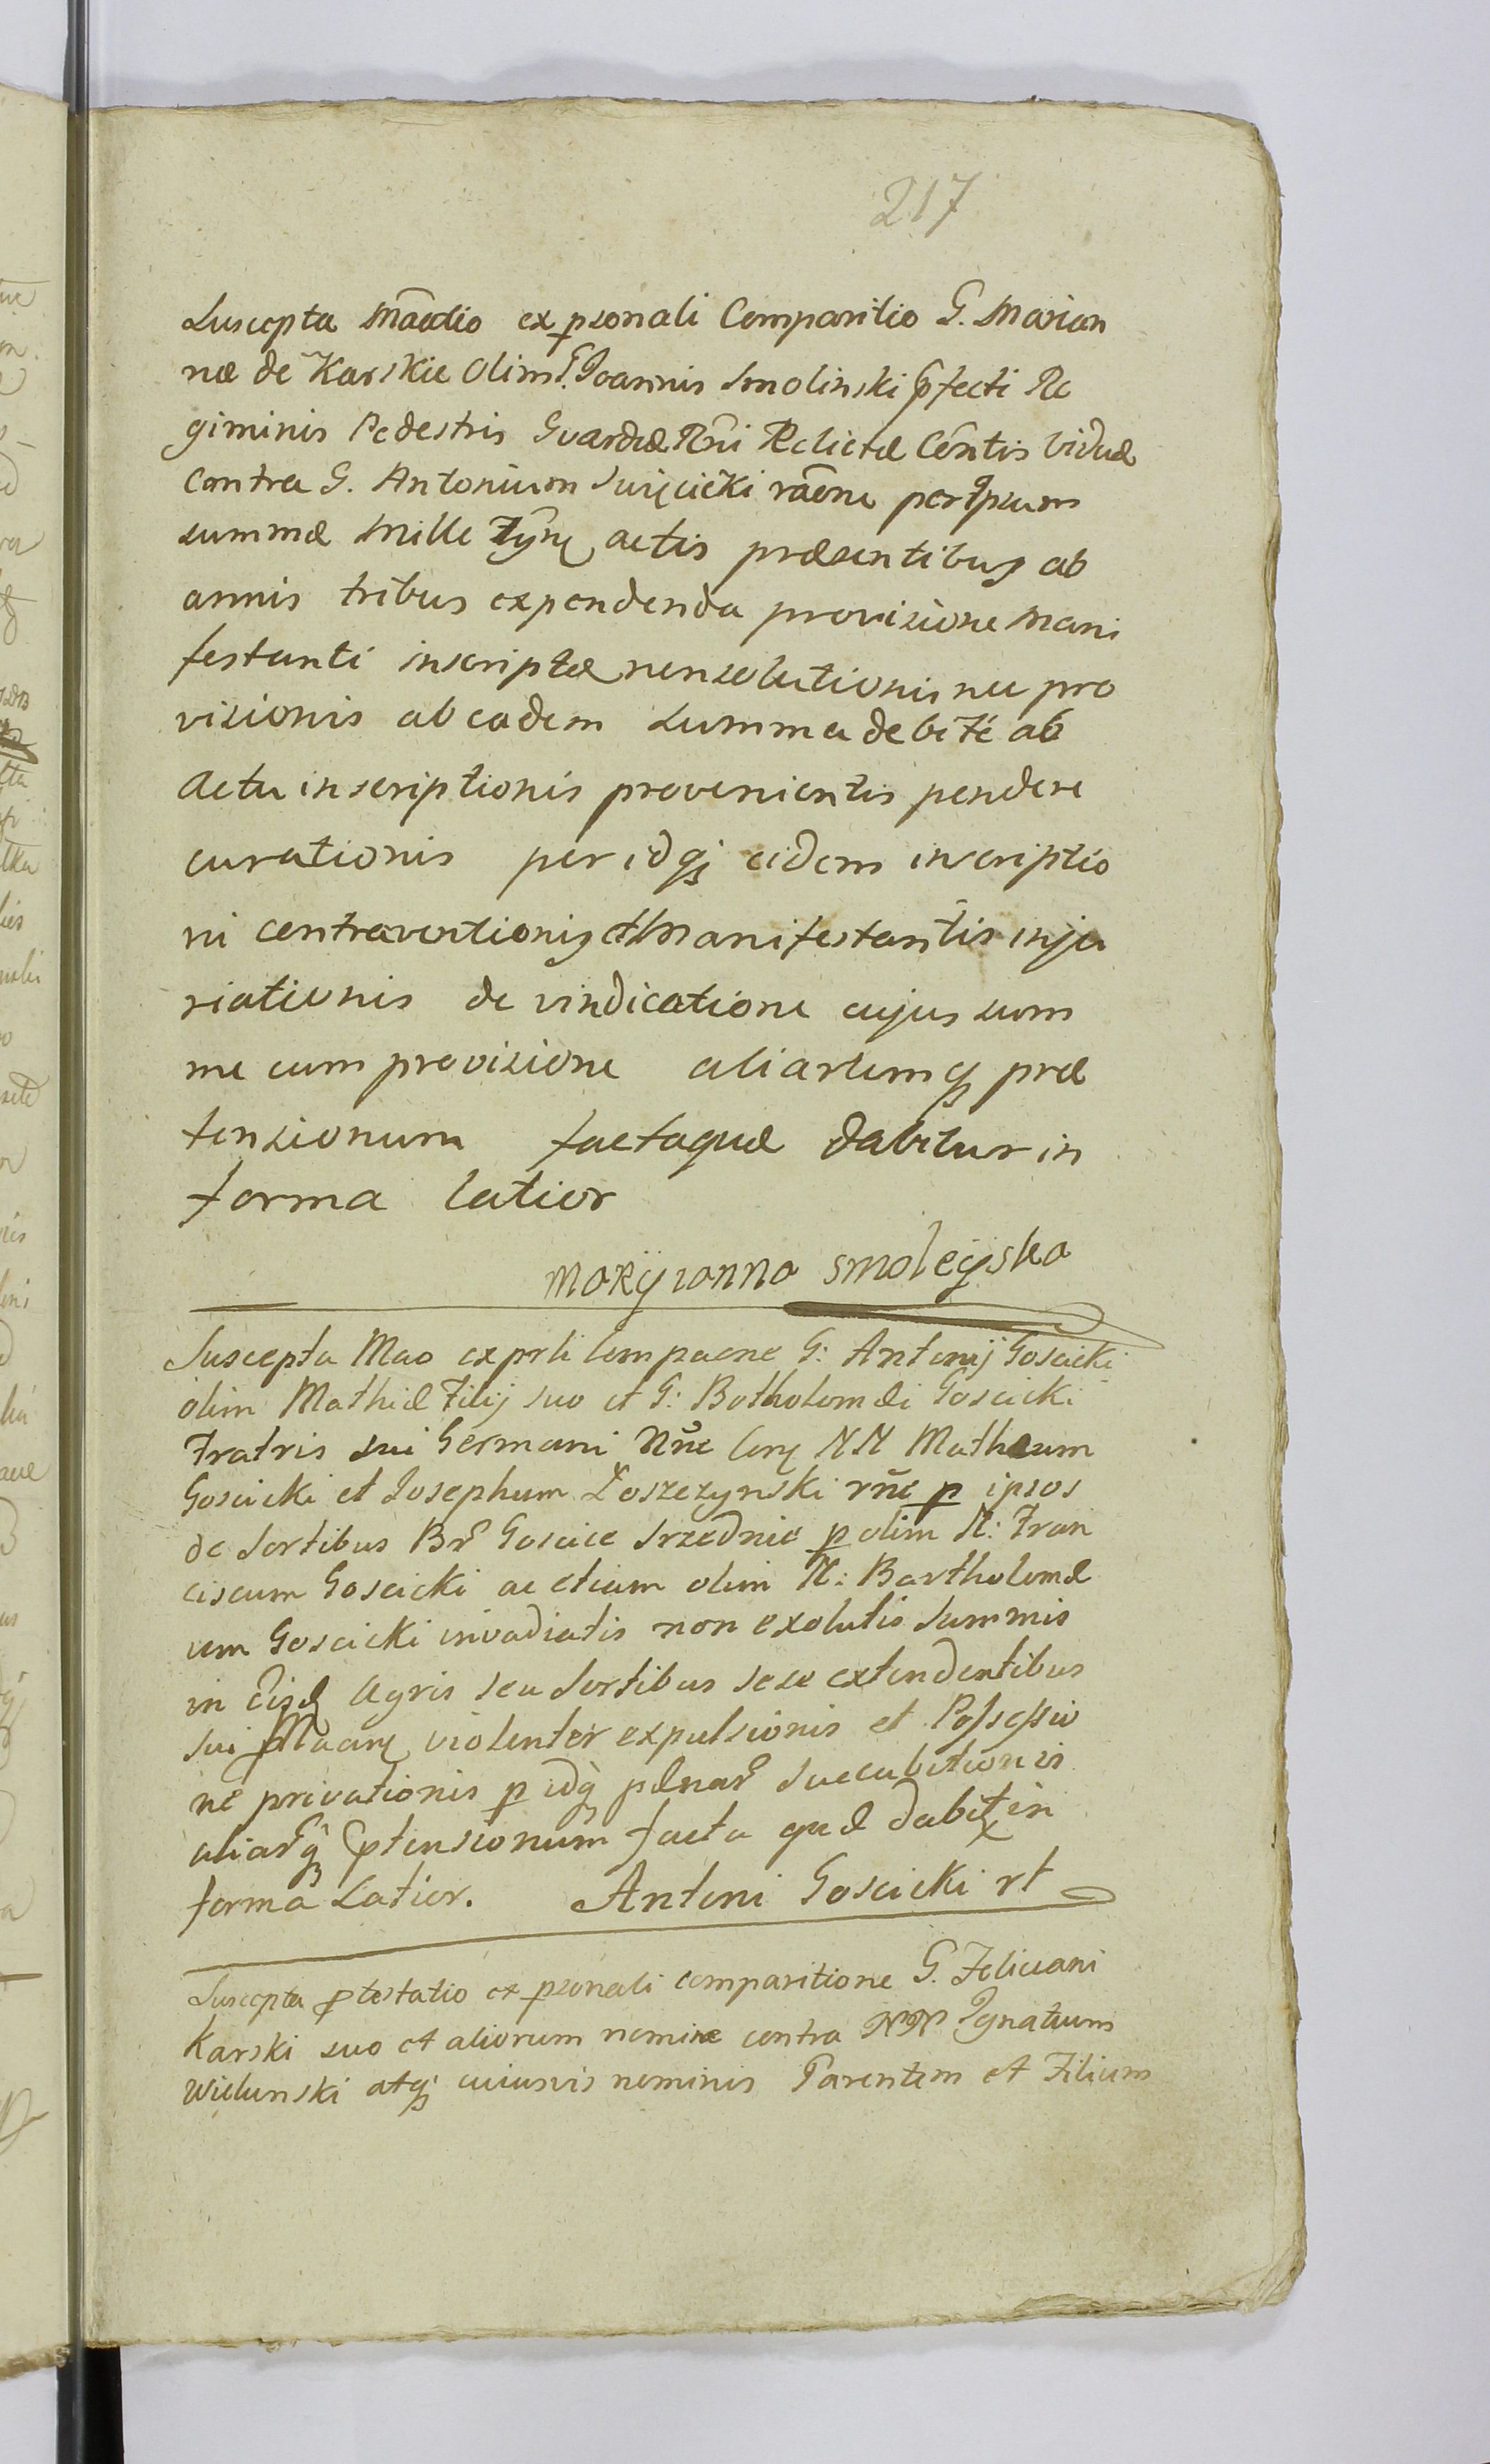 217
Suscepta Maedio ex psonali Comparitio G. Marian
næ de Karskie Olim G. Joannis Smolinski Pfecti Re
giminis Pedestris Guardiæ Rni Relictæ Contis Viduæ
Contra G. Antonium Swięcicki raõne per ipsum
summæ Mille actis præsentibus ab
annis tribus expendenda provisione Mani
festanti inscriptæ nonsolutionis nec pro
visionis ab eadem summa debité ab
Actu inscriptionis provenientis pendere
curationis per idq eidem inscriptio
ni contraventionis et Manifestantis inju
riationis de vindicatione cujus sum
me cum provisione aliarumq præ
tensionum factaquæ dabitur in
forma latior
Maryianna Smoleyska
Suscepta Mao ex prli Compaone G: Antonij Goscicki
olim Mathiæ Filij suo et G: Botholomæi Goscicki
Fratris sui Germani Nne NN Mathæum
Goscicki et Josephum Łoszczynski rne p ipsos
de Sortibus Br Goscice Srzednie p olim N: Fran
ciscum Goscicki ac etiam olim N: Bartholomæ
um Goscicki invadiatis non exolutis Summis
in Agris seu Sortibus sese extendentibus
sui violenter expulsionis et Possessio
né privationis p idq pænar Succubitionis
aliarq Ptensionum facta quæ dabit in
forma Latior. Antoni Goscicki rt
Suscepta Ptestatio ex psonali comparitione G. Feliciani
Karski suo et aliorum nomine contra NN Ignatium
Wielunski atq cuiusvis nominis Parentem et Filium